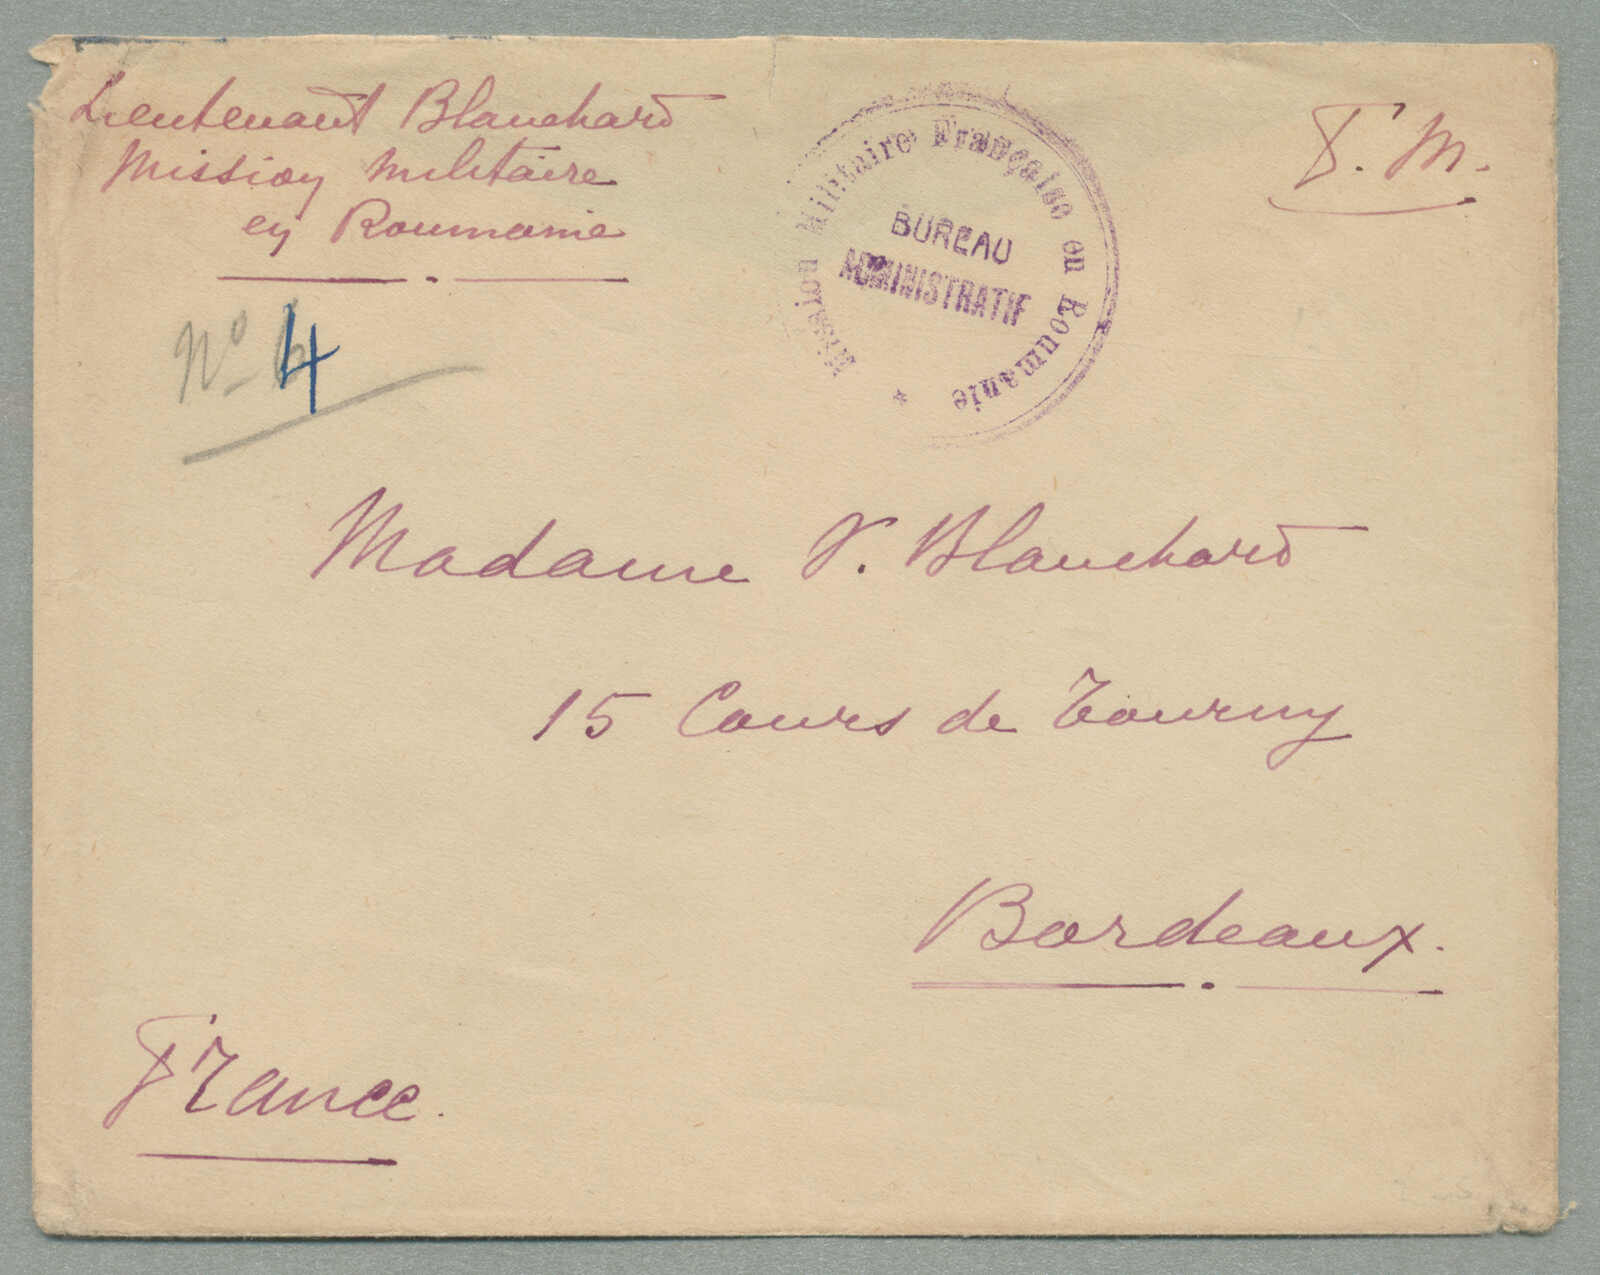 Lieutenant Blanchard
Mission Militaire
en Roumanie
F. M.
Mission Militaire Française en Roumanie *
BUREAU
ADMINISTRATIF
No 4
Madame V. Blanchard
15 Cours de Tourny
Bordeaux.
France.